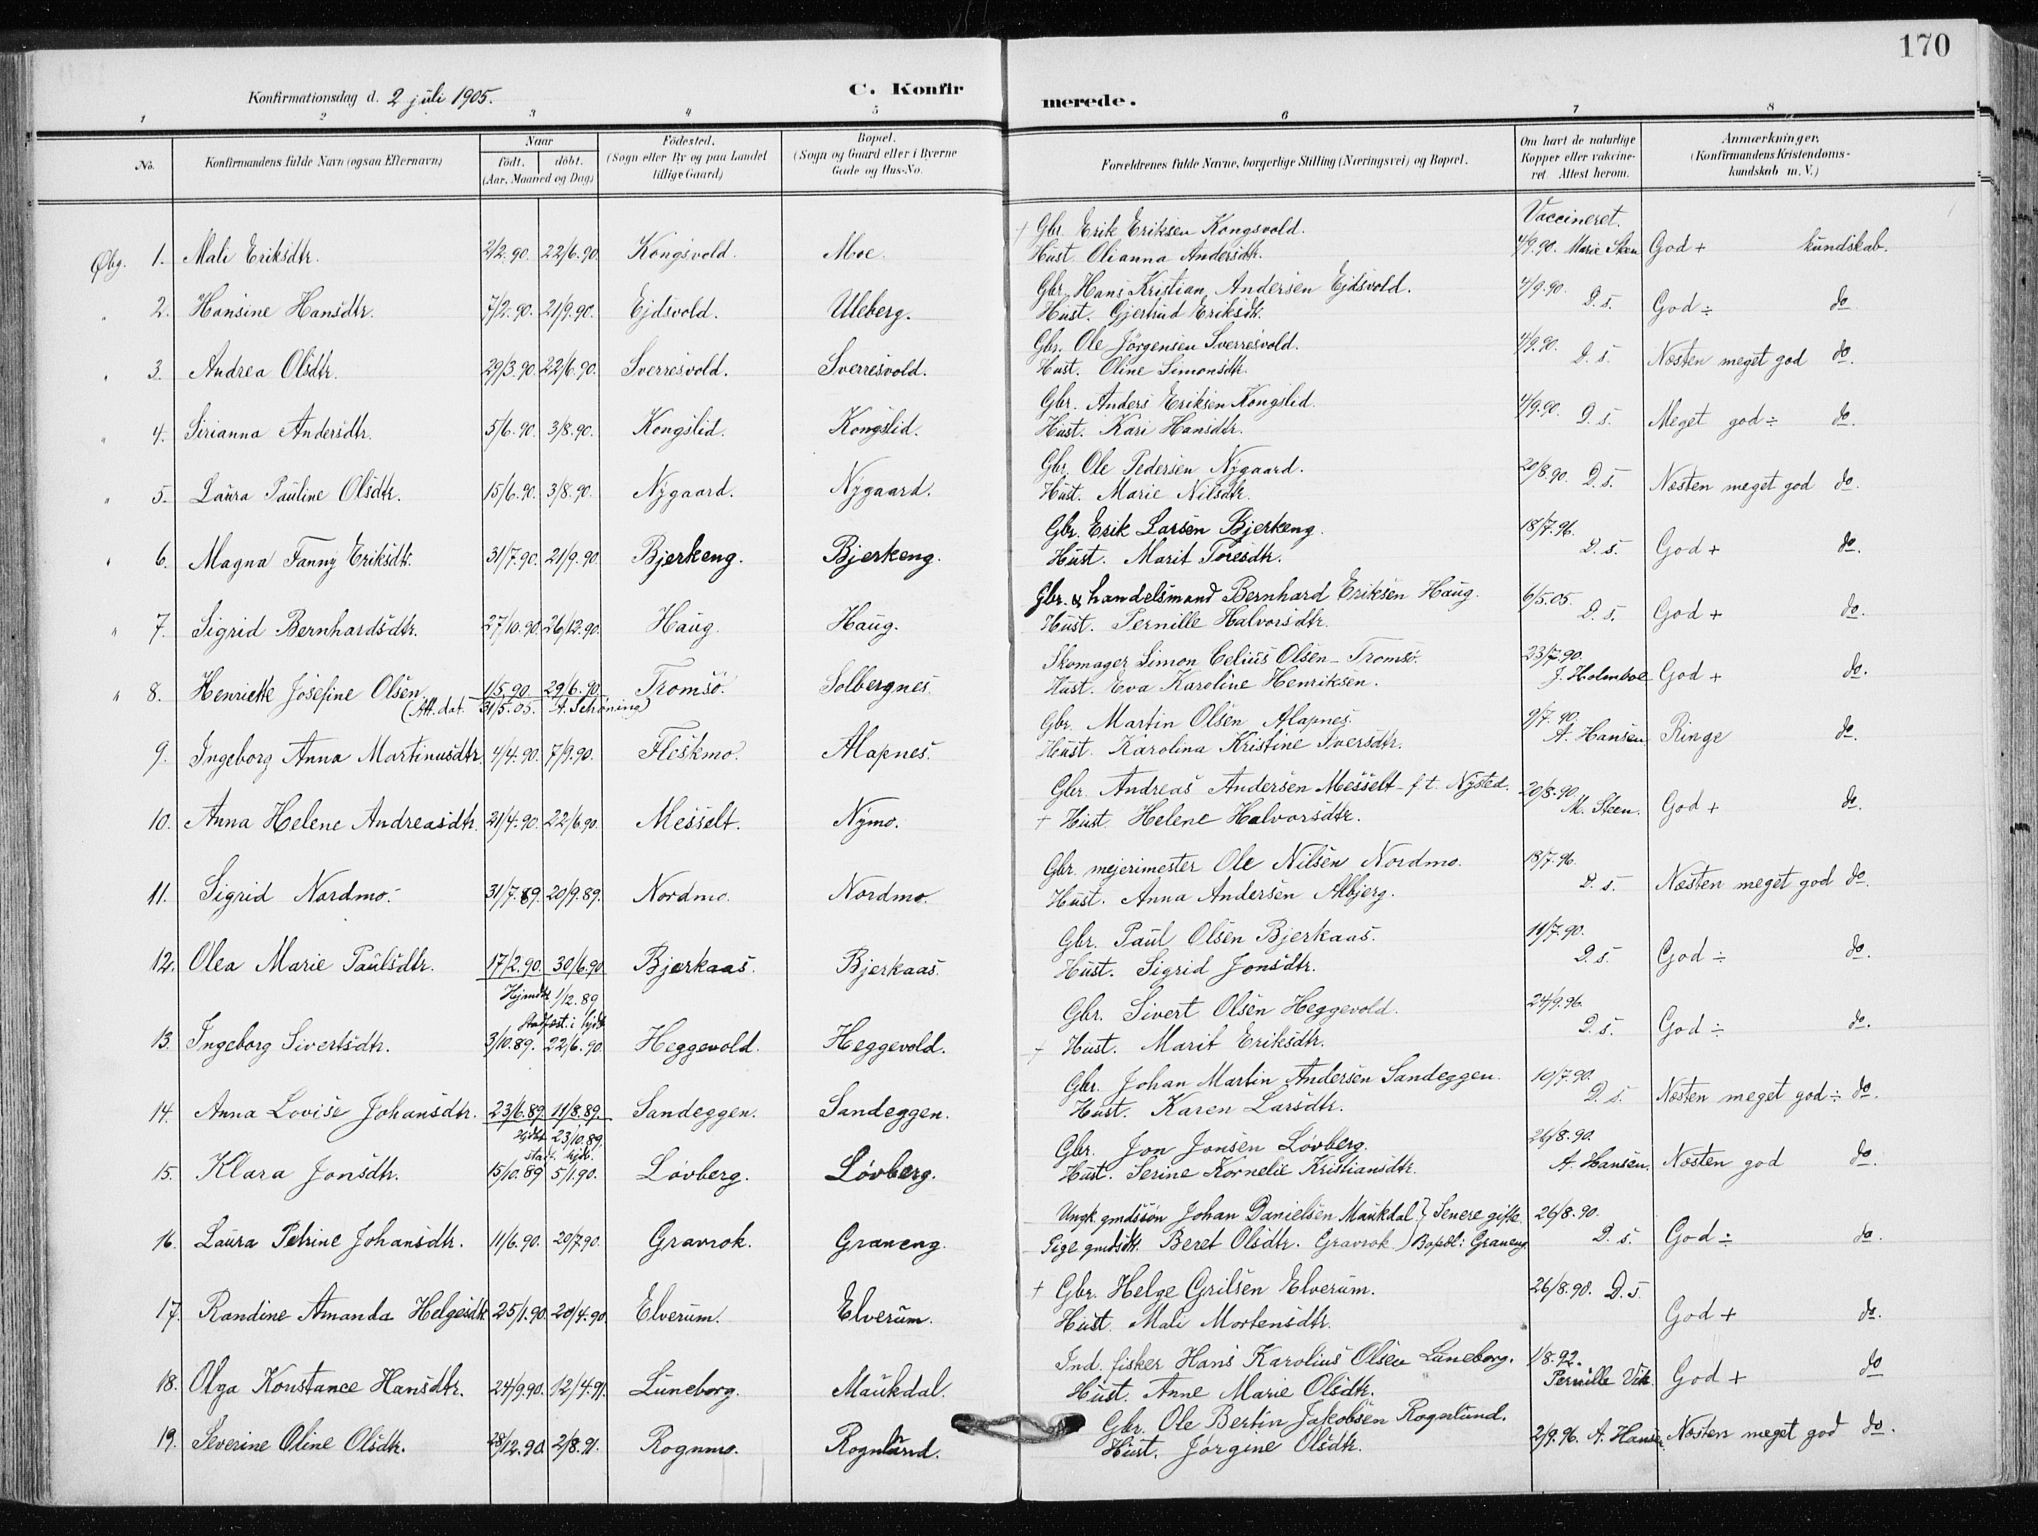 170
Konfirmationsdag d. 2 juli 1905.
C. Konfirmerede.
1 2 3 4 5 6 7 8
No.
Konfirmandens fulde Navn (ogsaa Efternavn)
Naar
født. døbt.
(Aar, Maaned og Dag)
Fødested.
(Sogn eller By og paa Landet
tillige Gaard)
Bopæl.
(Sogn og Gaard eller i Byerne
Gade og Hus-No.
Forældrenes fulde Navne, borgerlige Stilling (Næringsvei) og Bopæl.
Om havt de naturlige
Kopper eller vaccine-
ret. Attest herom.
Anmærkninger.
(Konfirmandens Kristendoms-
kundskab m. V.)
Vaccineret.
+ Gbr. Erik Eriksen Kongsvold.
Øbg. 1. Mali Eriksdtr. 2/2.90. 22/6.90. Kongsvold. Moe. Hust. Olianna Andersdtr. 4/9.90. Marie Steen God + kundskab.
Gbr. Hans Kristian Andersen Ejdsvold. 4/9.90.
" 2. Hansine Hansdtr. 7/2.90. 21/9.90. Ejdsvold. Uleberg. Hust. Gjertrud Eriksdtr. D. s. God ÷ do
Gbr. Ole Jørgensen Sverresvold. 4/9.90.
" 3. Andrea Olsdtr. 29/3.90. 22/6.90. Sverresvold. Sverresvold. Hust. Oline Simonsdtr. D. s. Næsten meget god do.
Gbr. Anders Eriksen Kongslid. 4/9.90.
" 4. Sirianna Andersdtr. 5/6.90. 3/8.90. Kongslid. Kongslid. Hust. Kari Hansdtr. D. s. Meget god ÷ do.
Gbr. Ole Pedersen Nygaard. 20/8.90.
" 5. Laura Pauline Olsdtr. 15/6.90. 3/8.90. Nygaard. Nygaard. Hust. Marie Nilsdtr. D. s. Næsten meget god do.
Gbr. Erik Larsen Bjerkeng. 18/7.96.
" 6. Magna Fanny Eriksdtr. 31/7.90. 21/9.90. Bjerkeng. Bjerkeng. Hust. Marit Toresdtr. D. s. God + do.
Gbr. & handelsmand Bernhard Eriksen Haug. 6/5.05.
" 7. Sigrid Bernhardsdtr. 27/10.90. 26/12.90. Haug. Haug. Hust. Pernille Halvorsdtr. D. s. God + do.
Skomager Simon Celius Olsen - Tromsø. 23/7.90.
" 8. Henriette Josefine Olsen 1/5.90 29/6.90. Tromsø. Solbergnes. Hust. Eva Karoline Henriksen. J. Holmboe God + do.
(Att. dat. 31/5.05. A. Schøning)
Gbr. Martin Olsen Alapnes. 9/7.90.
9. Ingeborg Anna Martinusdtr 4/4.90. 7/9.90. Fleskmo. Alapnes. Hust. Karolina Kristine Iversdtr. A. Hansen Ringe do.
Gbr. Andreas Andersen Messelt - f. t. Nysted. 20/8.90.
10. Anna Helene Andreasdtr. 21/4.90. 22/6.90. Messelt. Nymo. + Hust. Helene Halvorsdtr. M. Steen. God + do.
Gbr. mejerimester Ole Nilsen Nordmo. 18/7.96.
11. Sigrid Nordmo. 31/7.89. 20/9.89. Nordmo. Nordmo. Hust. Anna Andersen Akbjerg. D. s. Næsten meget god do.
Gbr. Paul Olsen Bjerkaas. 11/7.90.
12. Olea Marie Paulsdtr. 17/2.90. 30/6.90 Bjerkaas. Bjerkaas. Hust. Sigrid Jonsdtr. D. s. God ÷ do.
Hjmdbt 1/12.89
stadfæst. i kjdt
Gbr. Sivert Olsen Heggevold. 24/9.96.
13. Ingeborg Sivertsdtr. 3/10.89. 22/6.90. Heggevold. Heggevold. + Hust. Marit Eriksdtr. D. s. God ÷ do.
Gbr. Johan Martin Andersen Sandeggen. 10/7.90.
14. Anna Lovise Johansdtr. 23/6.89. 11/8.89. Sandeggen. Sandeggen. Hust. Karen Larsdtr. D. s. Næsten meget god ÷ do.
23/10.89.
Gbr. Jon Jonsen Løvberg. 26/8.90.
15. Klara Jonsdtr. 15/10.89 5/1.90. Løvberg. Løvberg. Hust. Serine Kornelie Kristiansdtr. A. Hansen. Næsten god do.
Ungk. gmdssøn Johan Danielsen Maukdal } Senere gifte. 26/8.90.
16. Laura Petrine Johansdtr. 11/6.90. 20/7.90. Gravrok. Graneng. Pige gmdsdtr. Beret Olsdtr. Gravrok } Bopæl: Graneng D. s. God ÷ do.
+ Gbr. Helge Grilsen Elverum. 26/8.90. D. s.
17. Randine Amanda Helgesdtr. 25/1.90. 20/4.90. Elverum. Elverum. Hust. Mali Mortensdtr. God + do.
Ind. fisker Hans Karolius Olsen Luneborg. 1/8.92.
18. Olga Konstance Hansdtr. 24/9.90. 12/4.91. Luneborg. Maukdal. Hust. Anne Marie Olsdtr. Pernille Vik. God + do
Gbr. Ole Bertin Jakobsen Rognlund.
19. Severine Oline Olsdtr. 28/12.90. 2/8.91. Rognmo. Rognlund. Hust. Jørgine Olsdtr. 2/9.96. A. Hansen Næsten meget god do.